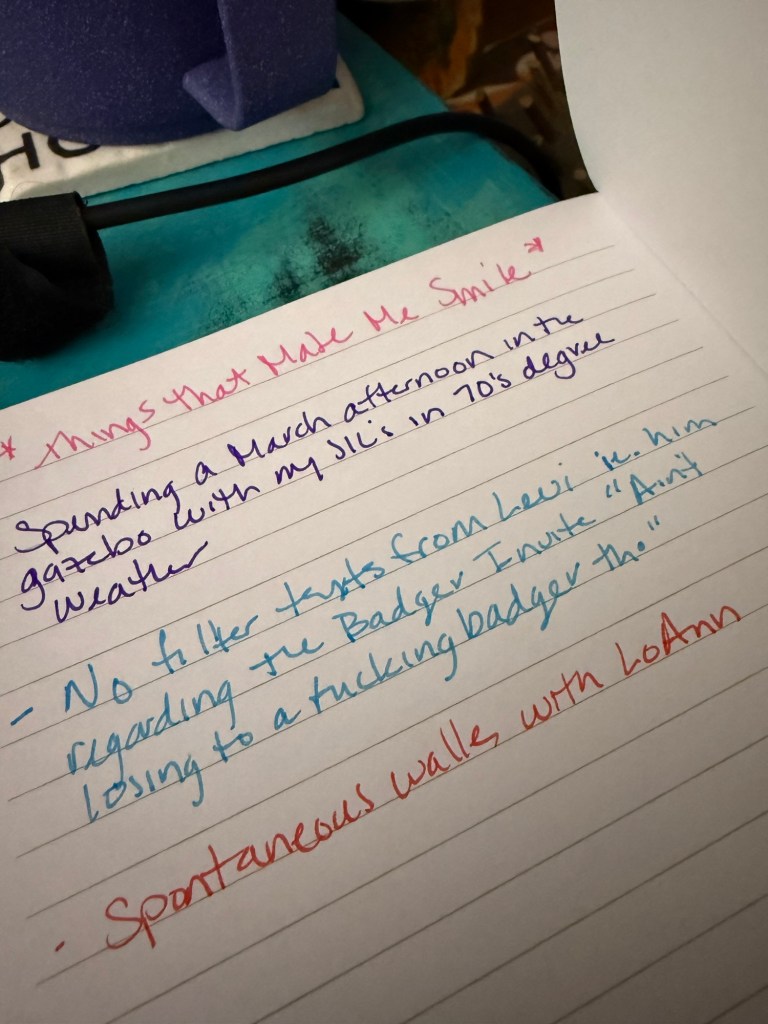 HO
* Things that Make Me Smile *
Spending a March afternoon in the
gazebo with my SIL's in 70's degree
weather
- No filter texts from Levi ie. him
regarding the Badger Invite "Ain't
losing to a fucking badger tho"
- Spontaneous walks with LoAnn